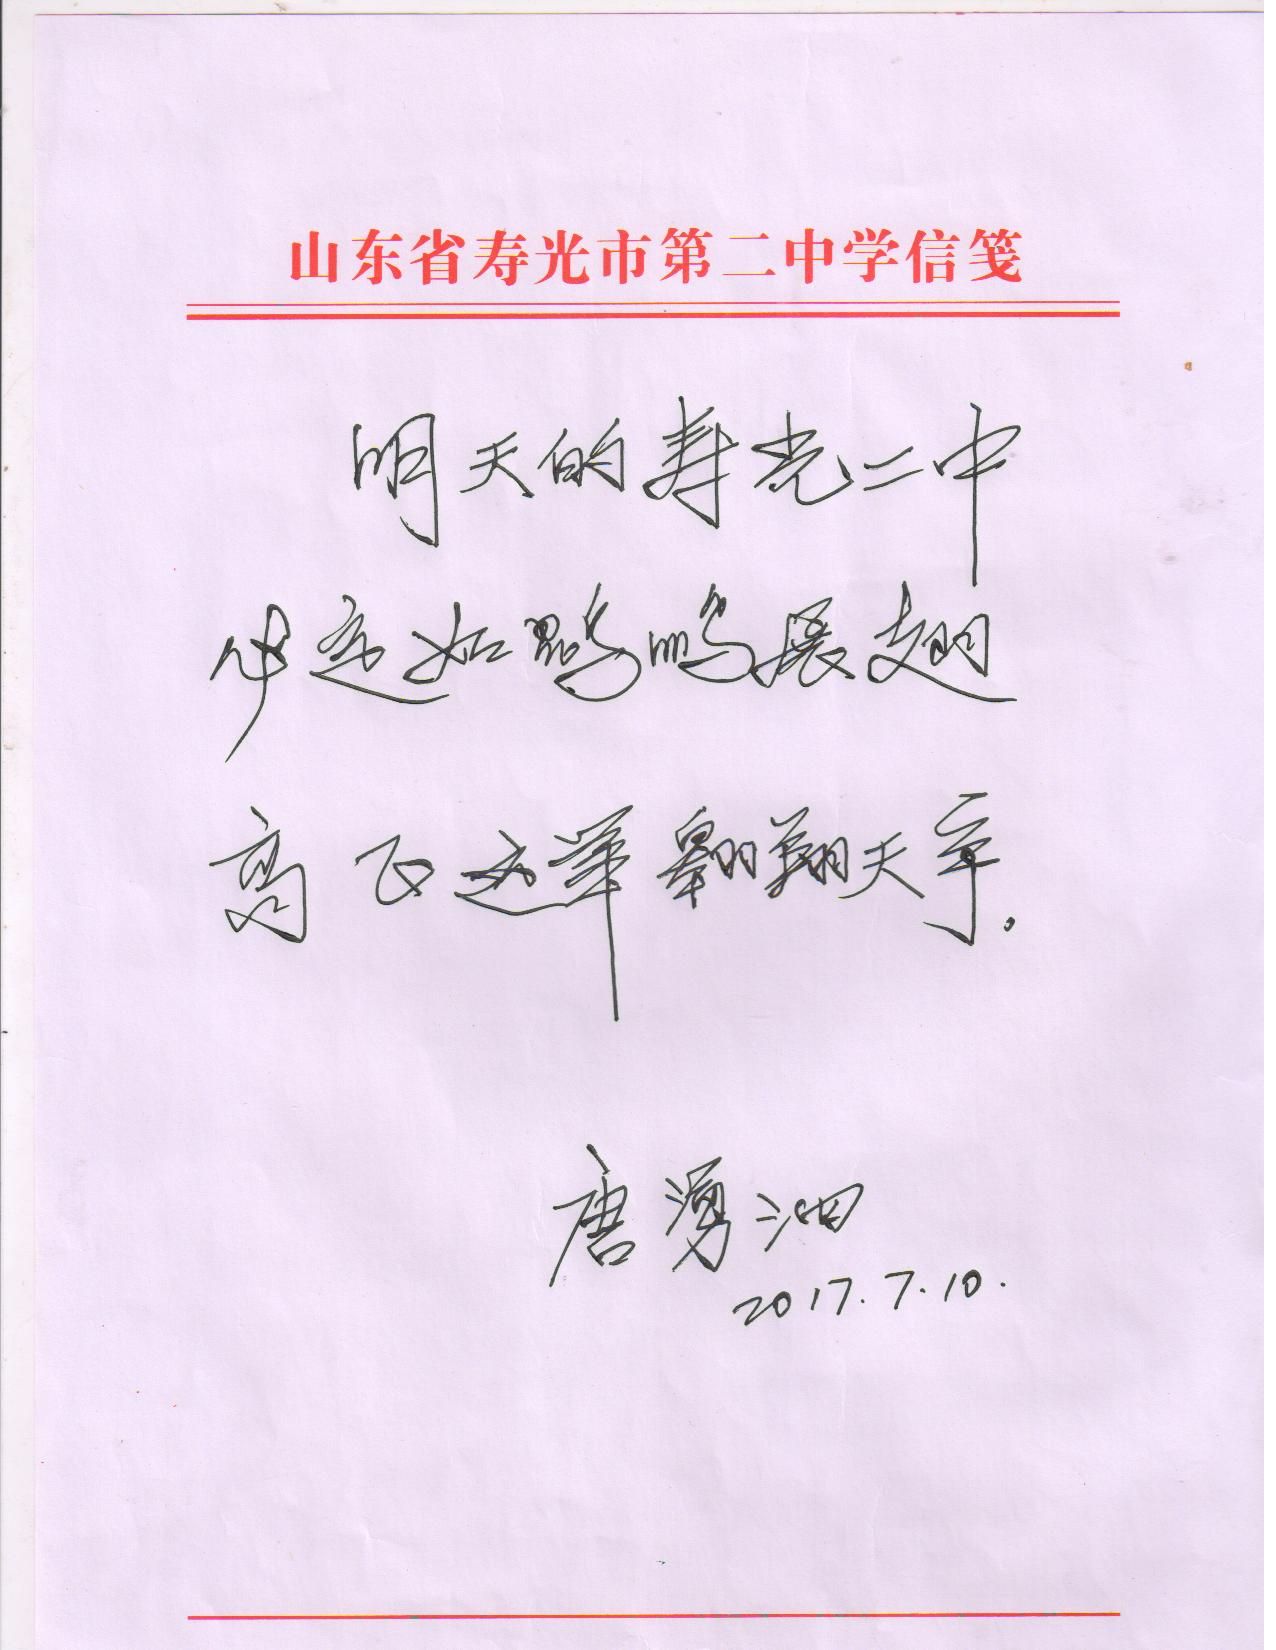 山东省寿光市第二中学信笺
明天的寿光二中
必定如鹍鹏展翅
高飞这笔翱翔天宇.
唐湧泗
2017.7.10.